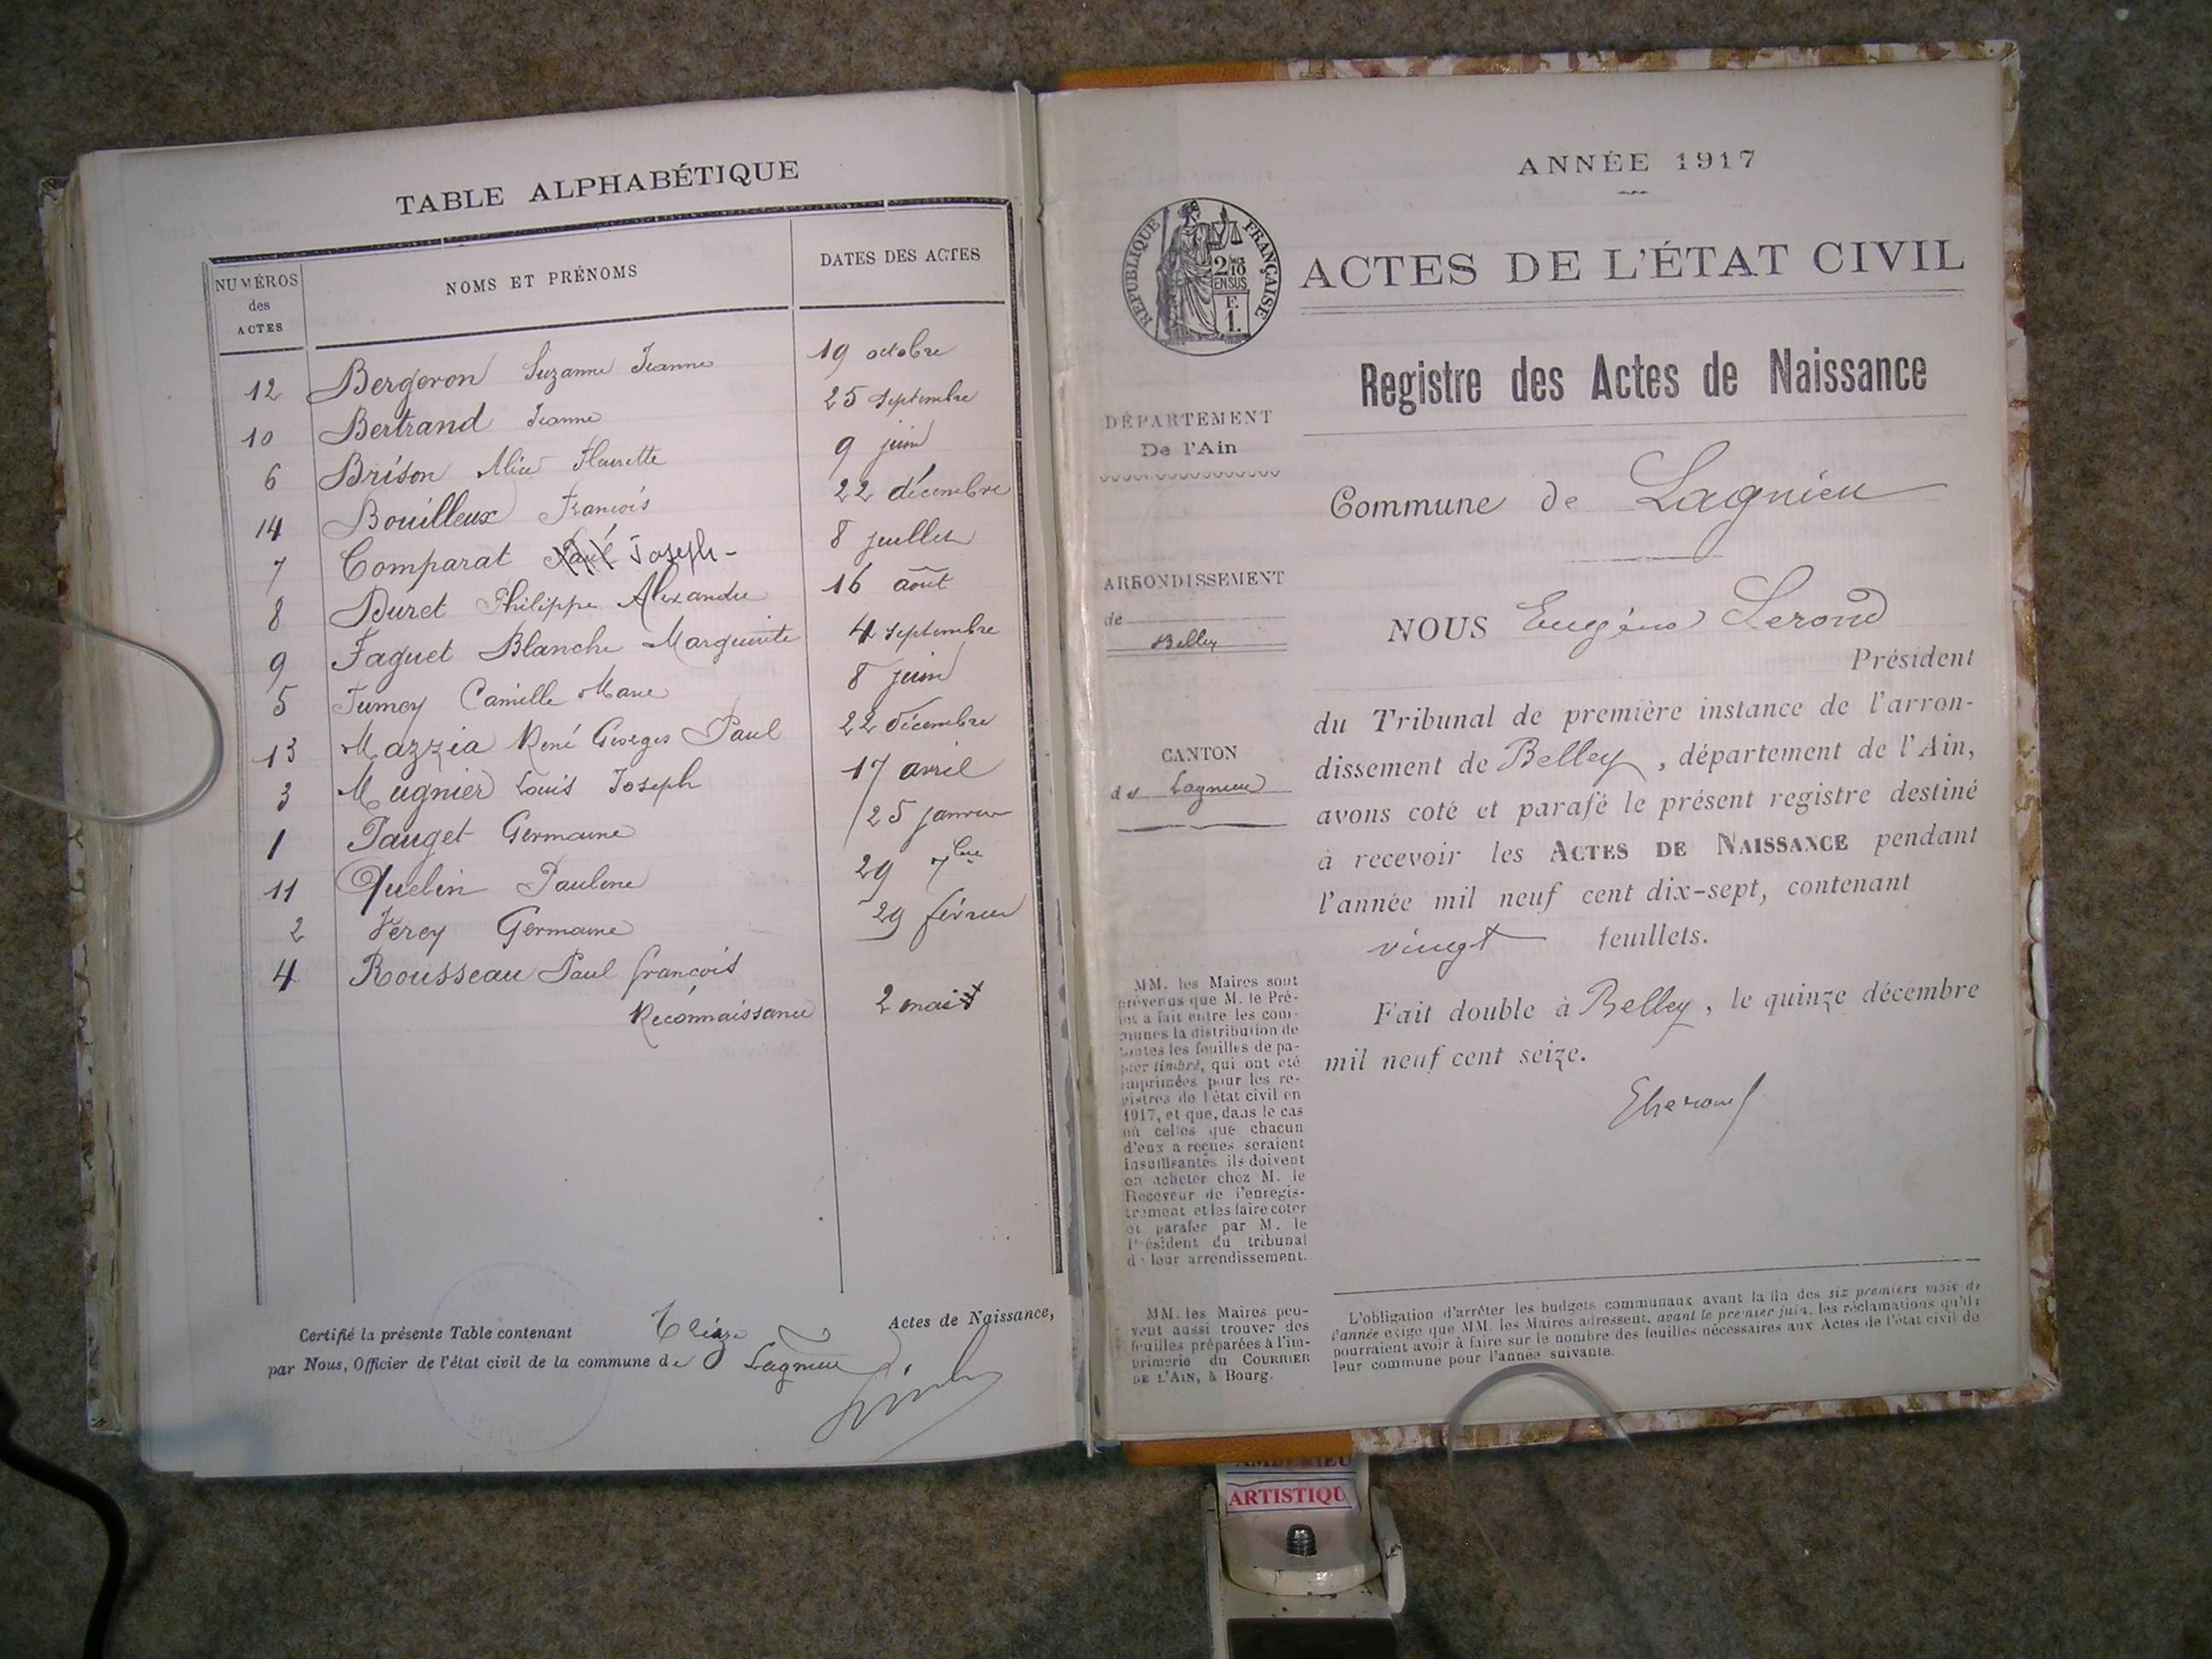 TABLE ALPHABÉTIQUE
NUMÉROS
des
ACTES
NOMS ET PRÉNOMS
DATES DES ACTES
12 Bergeron Suzanne Jeanne 19 octobre
10 Bertrand Jeanne 25 septembre
6 Brison Alice Fleurette 9 juin
14 Bouilleux François 22 décembre
7 Comparat Joseph - 8 juillet
8 Duret Philippe Alexandre 16 août
9 Faguet Blanche Marguerite 4 septembre
5 Fumey Camille Marie 8 juin
13 Mazzia René Georges Paul 22 décembre
3 Mugnier Louis Joseph 17 avril
1 Pauget Germaine 25 janvier
11 Quelin Pauline 29 7bre
2 Verey Germaine 29 février
4 Rousseau Paul françois
Reconnaissance 2 mai
Certifié la présente Table contenant Actes de Naissance,
par Nous, Officier de l'état civil de la commune de Lagnieu
ANNÉE 1917
RÉPUBLIQUE FRANÇAISE
2/10
EN SUS
F.
1.
ACTES DE L'ÉTAT CIVIL
Registre des Actes de Naissance
DÉPARTEMENT
De l'Ain
Commune de Lagnieu
ARRONDISSEMENT
de
Belley
NOUS Eugène Lerond
Président
du Tribunal de première instance de l'arron-
dissement de Belley, département de l'Ain,
avons coté et parafé le présent registre destiné
à recevoir les ACTES DE NAISSANCE pendant
l'année mil neuf cent dix-sept, contenant
vingt feuillets.
Fait double à Belley, le quinze décembre
mil neuf cent seize.
CANTON
de Lagnieu
MM. les Maires sont
prévenus que M. le Pré-
fet a fait entre les com-
munes la distribution de
toutes les feuilles de pa-
pier timbré, qui ont été
imprimées pour les re-
gistres de l'état civil en
1917, et que, dans le cas
où celles que chacun
d'eux a reçues seraient
insuffisantes ils doivent
en acheter chez M. le
Receveur de l'enregis-
trement et les faire coter
et parafer par M. le
Président du tribunal
de leur arrondissement.
MM. les Maires peu-
vent aussi trouver des
feuilles préparées à l'im-
primerie du COURRIER
DE L'AIN, à Bourg.
L'obligation d'arrêter les budgets communaux avant la fin des six premiers mois de
l'année exige que MM. les Maires adressent, avant le premier juin, les réclamations qu'ils
pourraient avoir à faire sur le nombre des feuilles nécessaires aux Actes de l'état civil de
leur commune pour l'année suivante.
ARTISTIQU